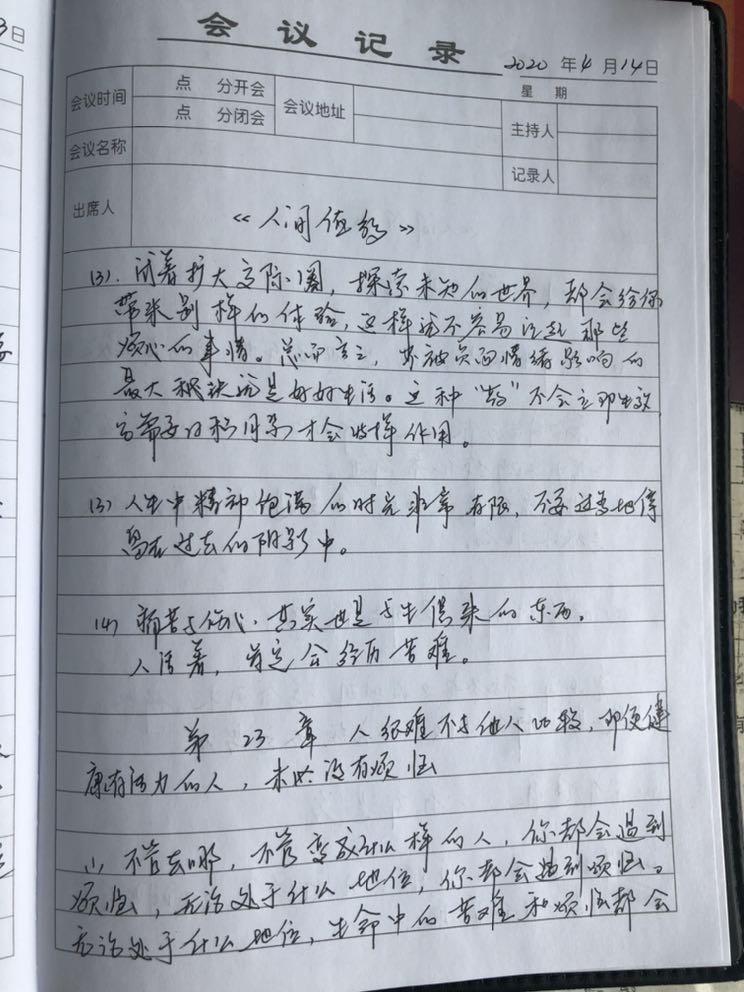 3日
会议记录
2020年4月14日
星期
会议时间 点 分开会 会议地址 主持人
点 分闭会
会议名称 记录人
出席人
《人间值得》
(3). 试着扩大交际圈，探索未知的世界，都会给你
带来别样的体验，这样就不容易记起那些
烦心的事情。总而言之，不被负面情绪影响的
最大秘诀就是好好生活。这种“药”不会立即生效
它需要日积月累才会发挥作用。
(3) 人生中精神饱满的时光非常有限，不要过多地停
留在过去的阴影中。
(4) 痛苦与信心，其实也是与生俱来的东西。
人活着，肯定会经历苦难。
第23章 人很难不与他人比较，即便健
康有活力的人，未必没有烦恼
(1) 不管去哪，不管变成什么样的人，你都会遇到
烦恼，无论处于什么地位，你都会遇到烦恼。
无论处于什么地位，生命中的苦难和烦恼都会